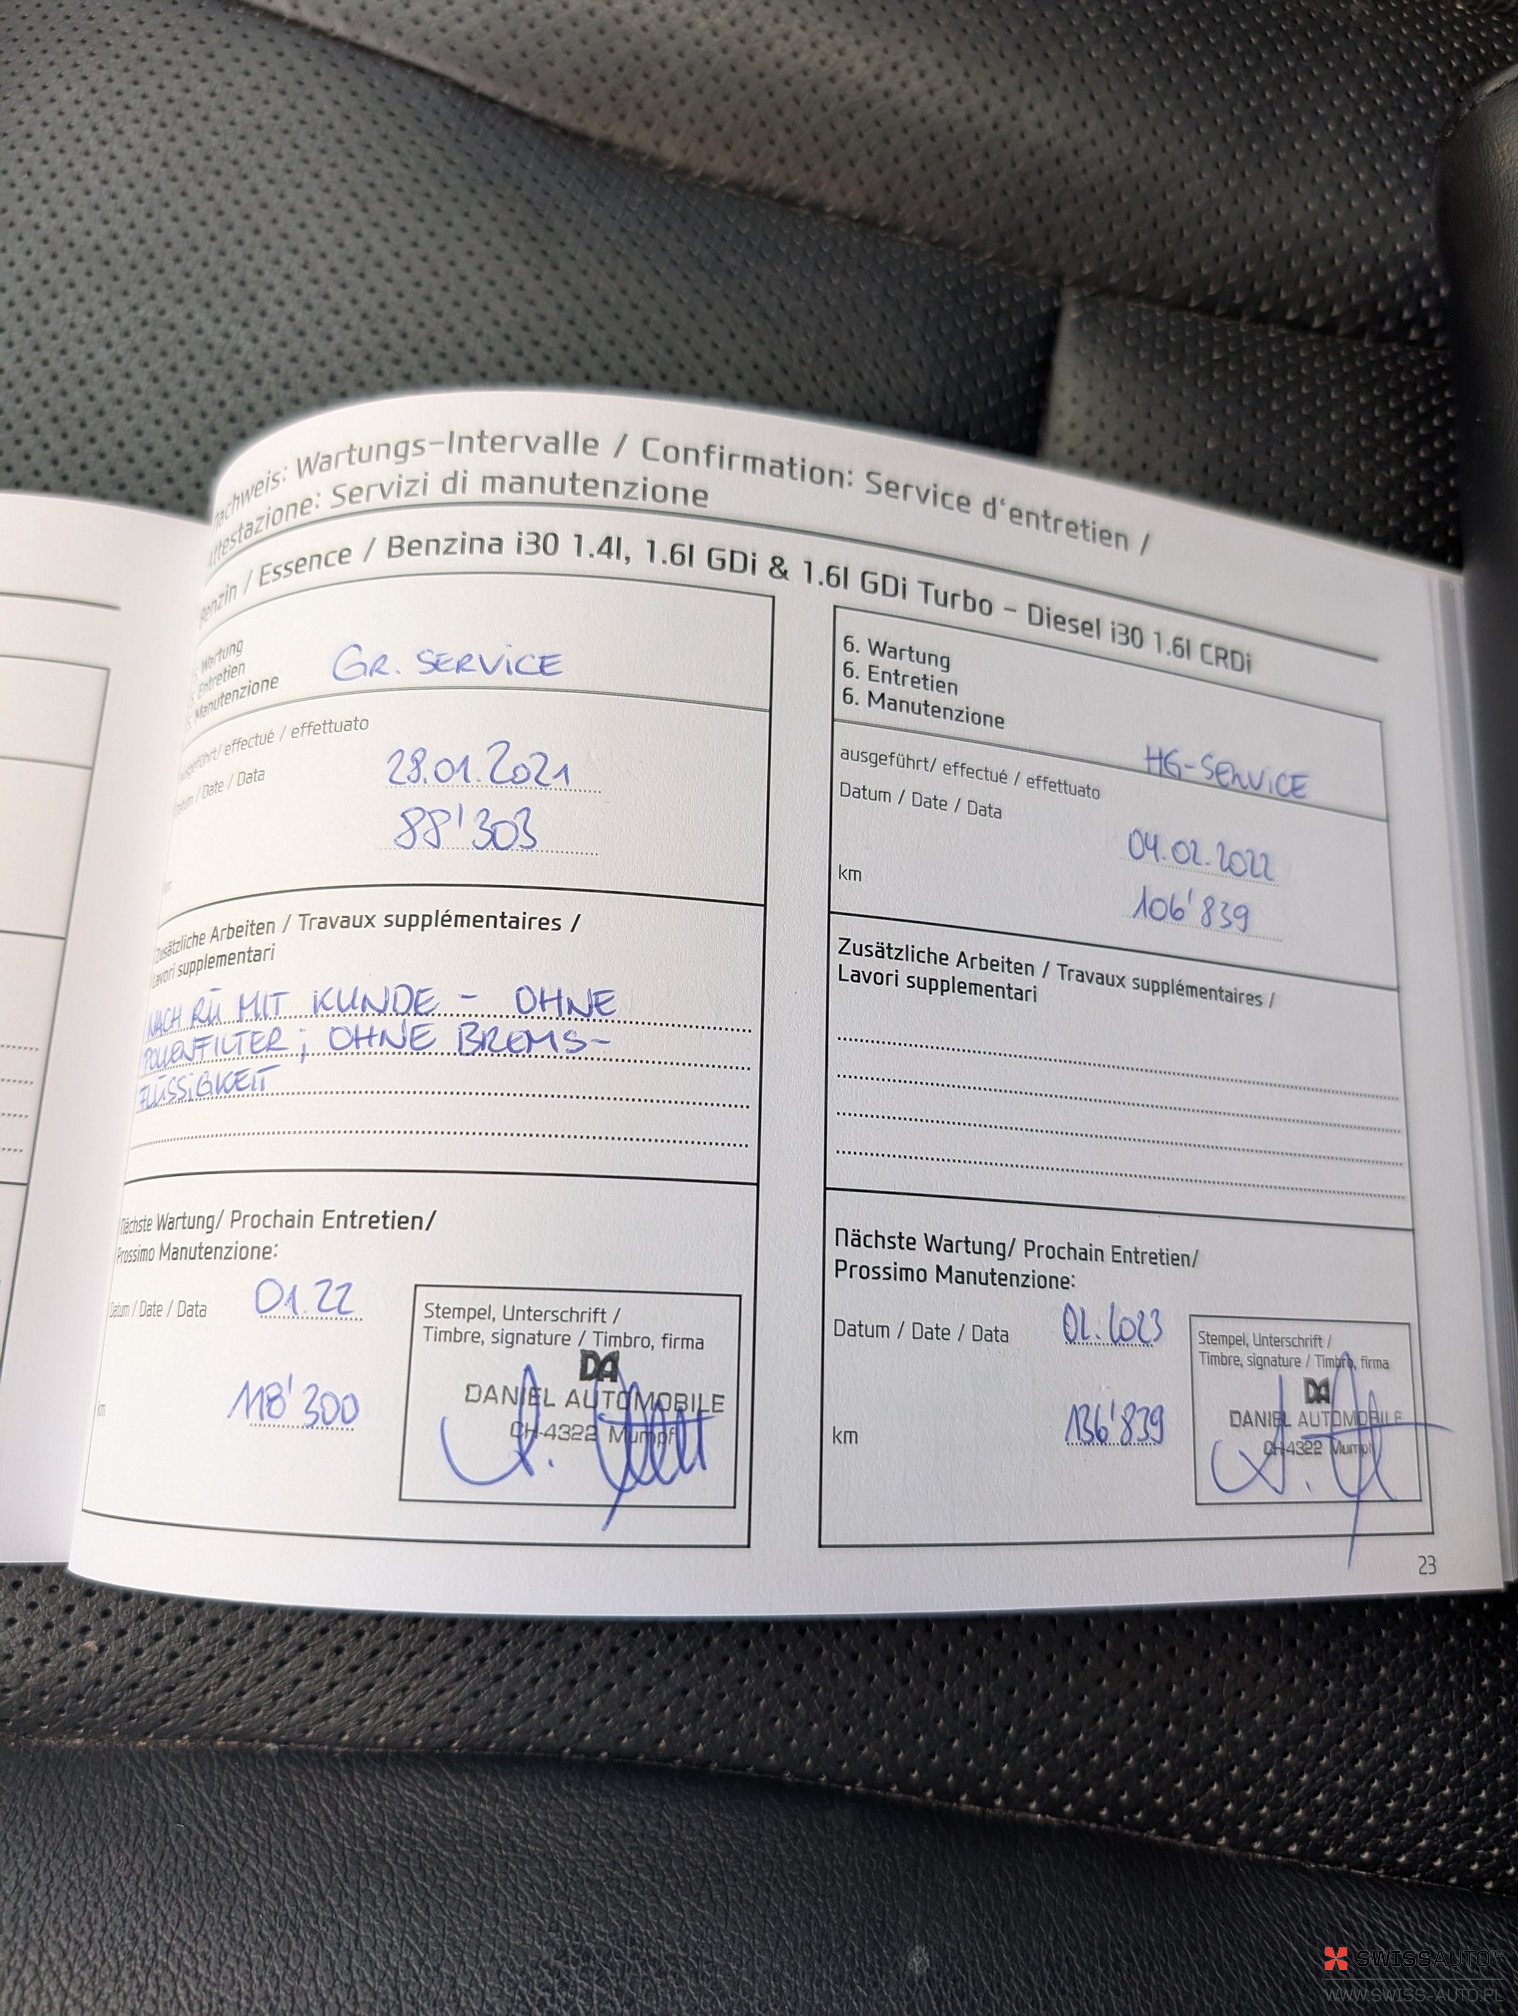 Nachweis: Wartungs-Intervalle / Confirmation: Service d'entretien /
Attestazione: Servizi di manutenzione
Benzin / Essence / Benzina i30 1.4l, 1.6l GDi & 1.6l GDi Turbo - Diesel i30 1.6l CRDi
Wartung
Entretien
Manutenzione
GR. SERVICE
ausgeführt/ effectué / effettuato
Datum / Date / Data
28.01.2021
km
88'303
Zusätzliche Arbeiten / Travaux supplémentaires /
Lavori supplementari
NACH RÜ MIT KUNDE - OHNE
POLLENFILTER; OHNE BREMS-
FLÜSSIGKEIT
Nächste Wartung/ Prochain Entretien/
Prossimo Manutenzione:
Datum / Date / Data
01.22
km
118'300
Stempel, Unterschrift /
Timbre, signature / Timbro, firma
DA
DANIEL AUTOMOBILE
CH-4322 Mumpf
6. Wartung
6. Entretien
6. Manutenzione
HG-SERVICE
ausgeführt/ effectué / effettuato
Datum / Date / Data
04.02.2022
km
106'839
Zusätzliche Arbeiten / Travaux supplémentaires /
Lavori supplementari
Nächste Wartung/ Prochain Entretien/
Prossimo Manutenzione:
Datum / Date / Data
02.2023
km
136'839
Stempel, Unterschrift /
Timbre, signature / Timbro, firma
DA
DANIEL AUTOMOBILE
CH-4322 Mumpf
23
SWISSAUTO
WWW.SWISS-AUTO.PL